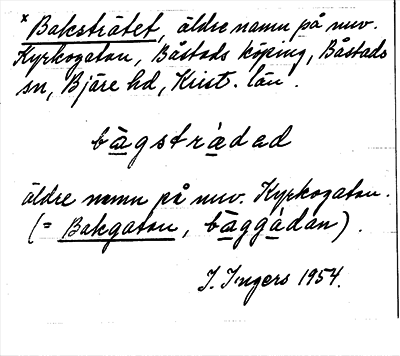 x Baksträtet, äldre namn på nuv.
Kyrkogatan, Båstads köping, Båstads
sn, Bjäre hd, Krist. län.
bàgstrádad
äldre namn på nuv. Kyrkogatan.
(= Bakgatan, bàggádan).
I. Ingers 1954.